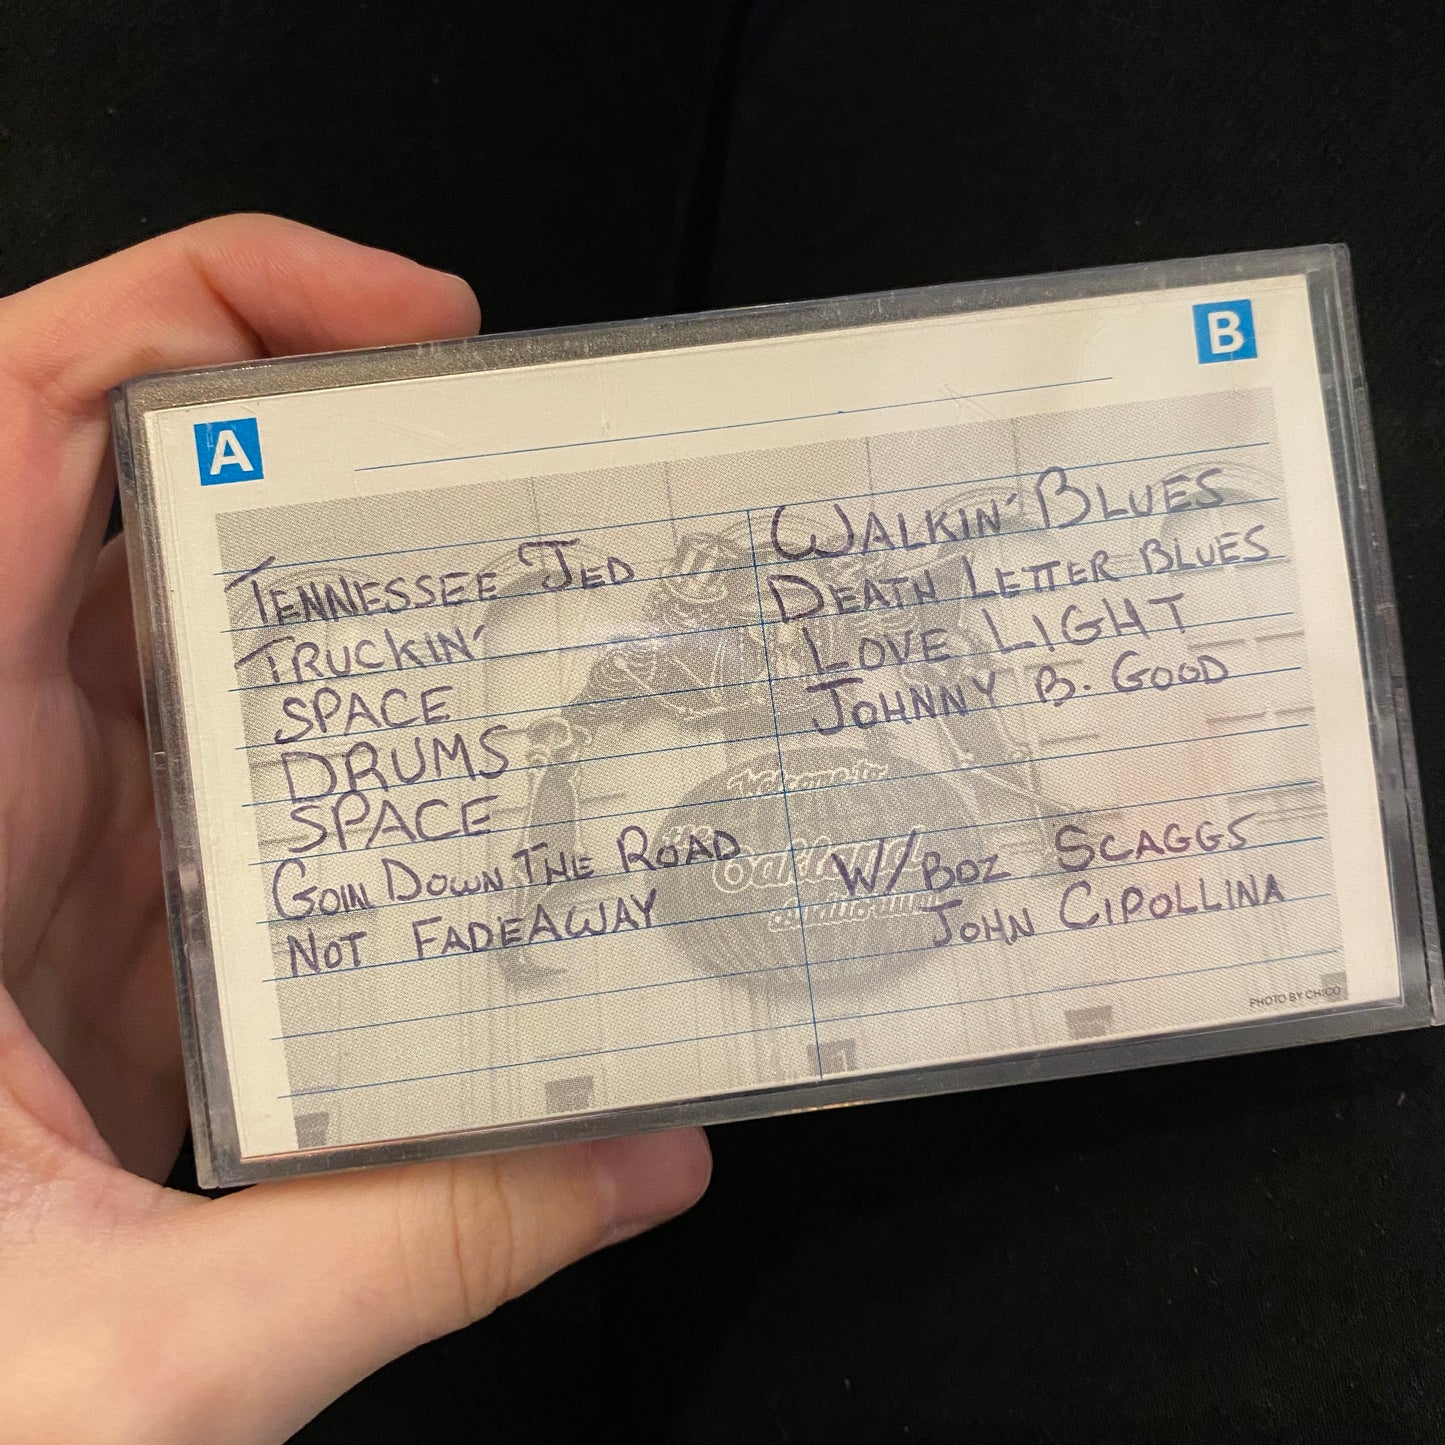 A
B
TENNESSEE JED
TRUCKIN'
SPACE
DRUMS
SPACE
GOIN DOWN THE ROAD
NOT FADEAWAY
WALKIN' BLUES
DEATH LETTER BLUES
LOVE LIGHT
JOHNNY B. GOOD
W/ BOZ SCAGGS
JOHN CIPOLLINA
Welcome to
the
Oakland
Auditorium
PHOTO BY CHICO